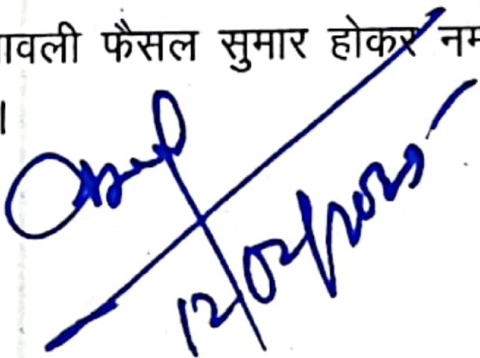 ावली फैसल सुमार होकर नम
।
12/02/2025